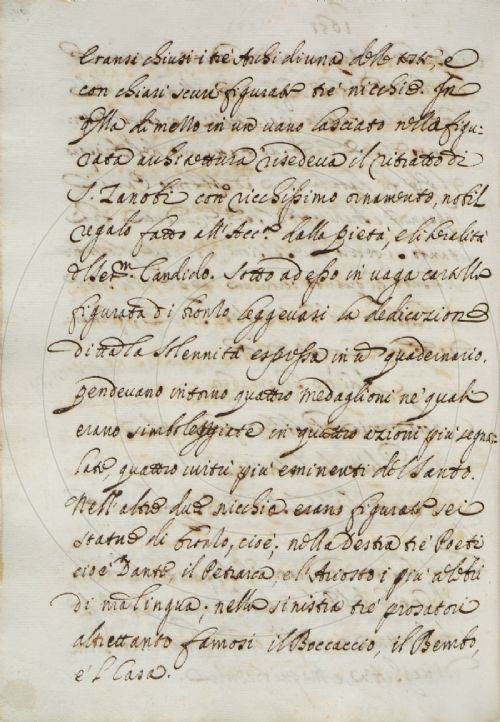 Eransi chiusi i tre Archi di una delle teste, e
con chiari scuri figurate tre nicchie. In
qlla di mezzo in un vano lasciato nella figu-
rata architettura risedeva il ritratto di
S. Zanobi con ricchissimo ornamento, nobil
regalo fatto all'Acc.ª dalla pietà, e liberalità
del Ser.mo Candido. Sotto ad esso in vaga cartella
figurata di bronzo leggevasi la dedicazione
di tta la solennità espressa in un quadernario.
pendevano intorno quattro medaglioni ne' quali
erano simboleggiate in quattro azioni più segna-
late, quattro virtù più eminenti del Santo.
Nell'altre due nicchie erano figurate sei
statue di bronzo, cioè, nella destra tre Poeti
cioè Dante, il Petrarca, e l'Ariosto i più celebri
di ma lingua; nella sinistra tre prosatori
altrettanto famosi il Boccaccio, il Bembo,
e 'l Casa.